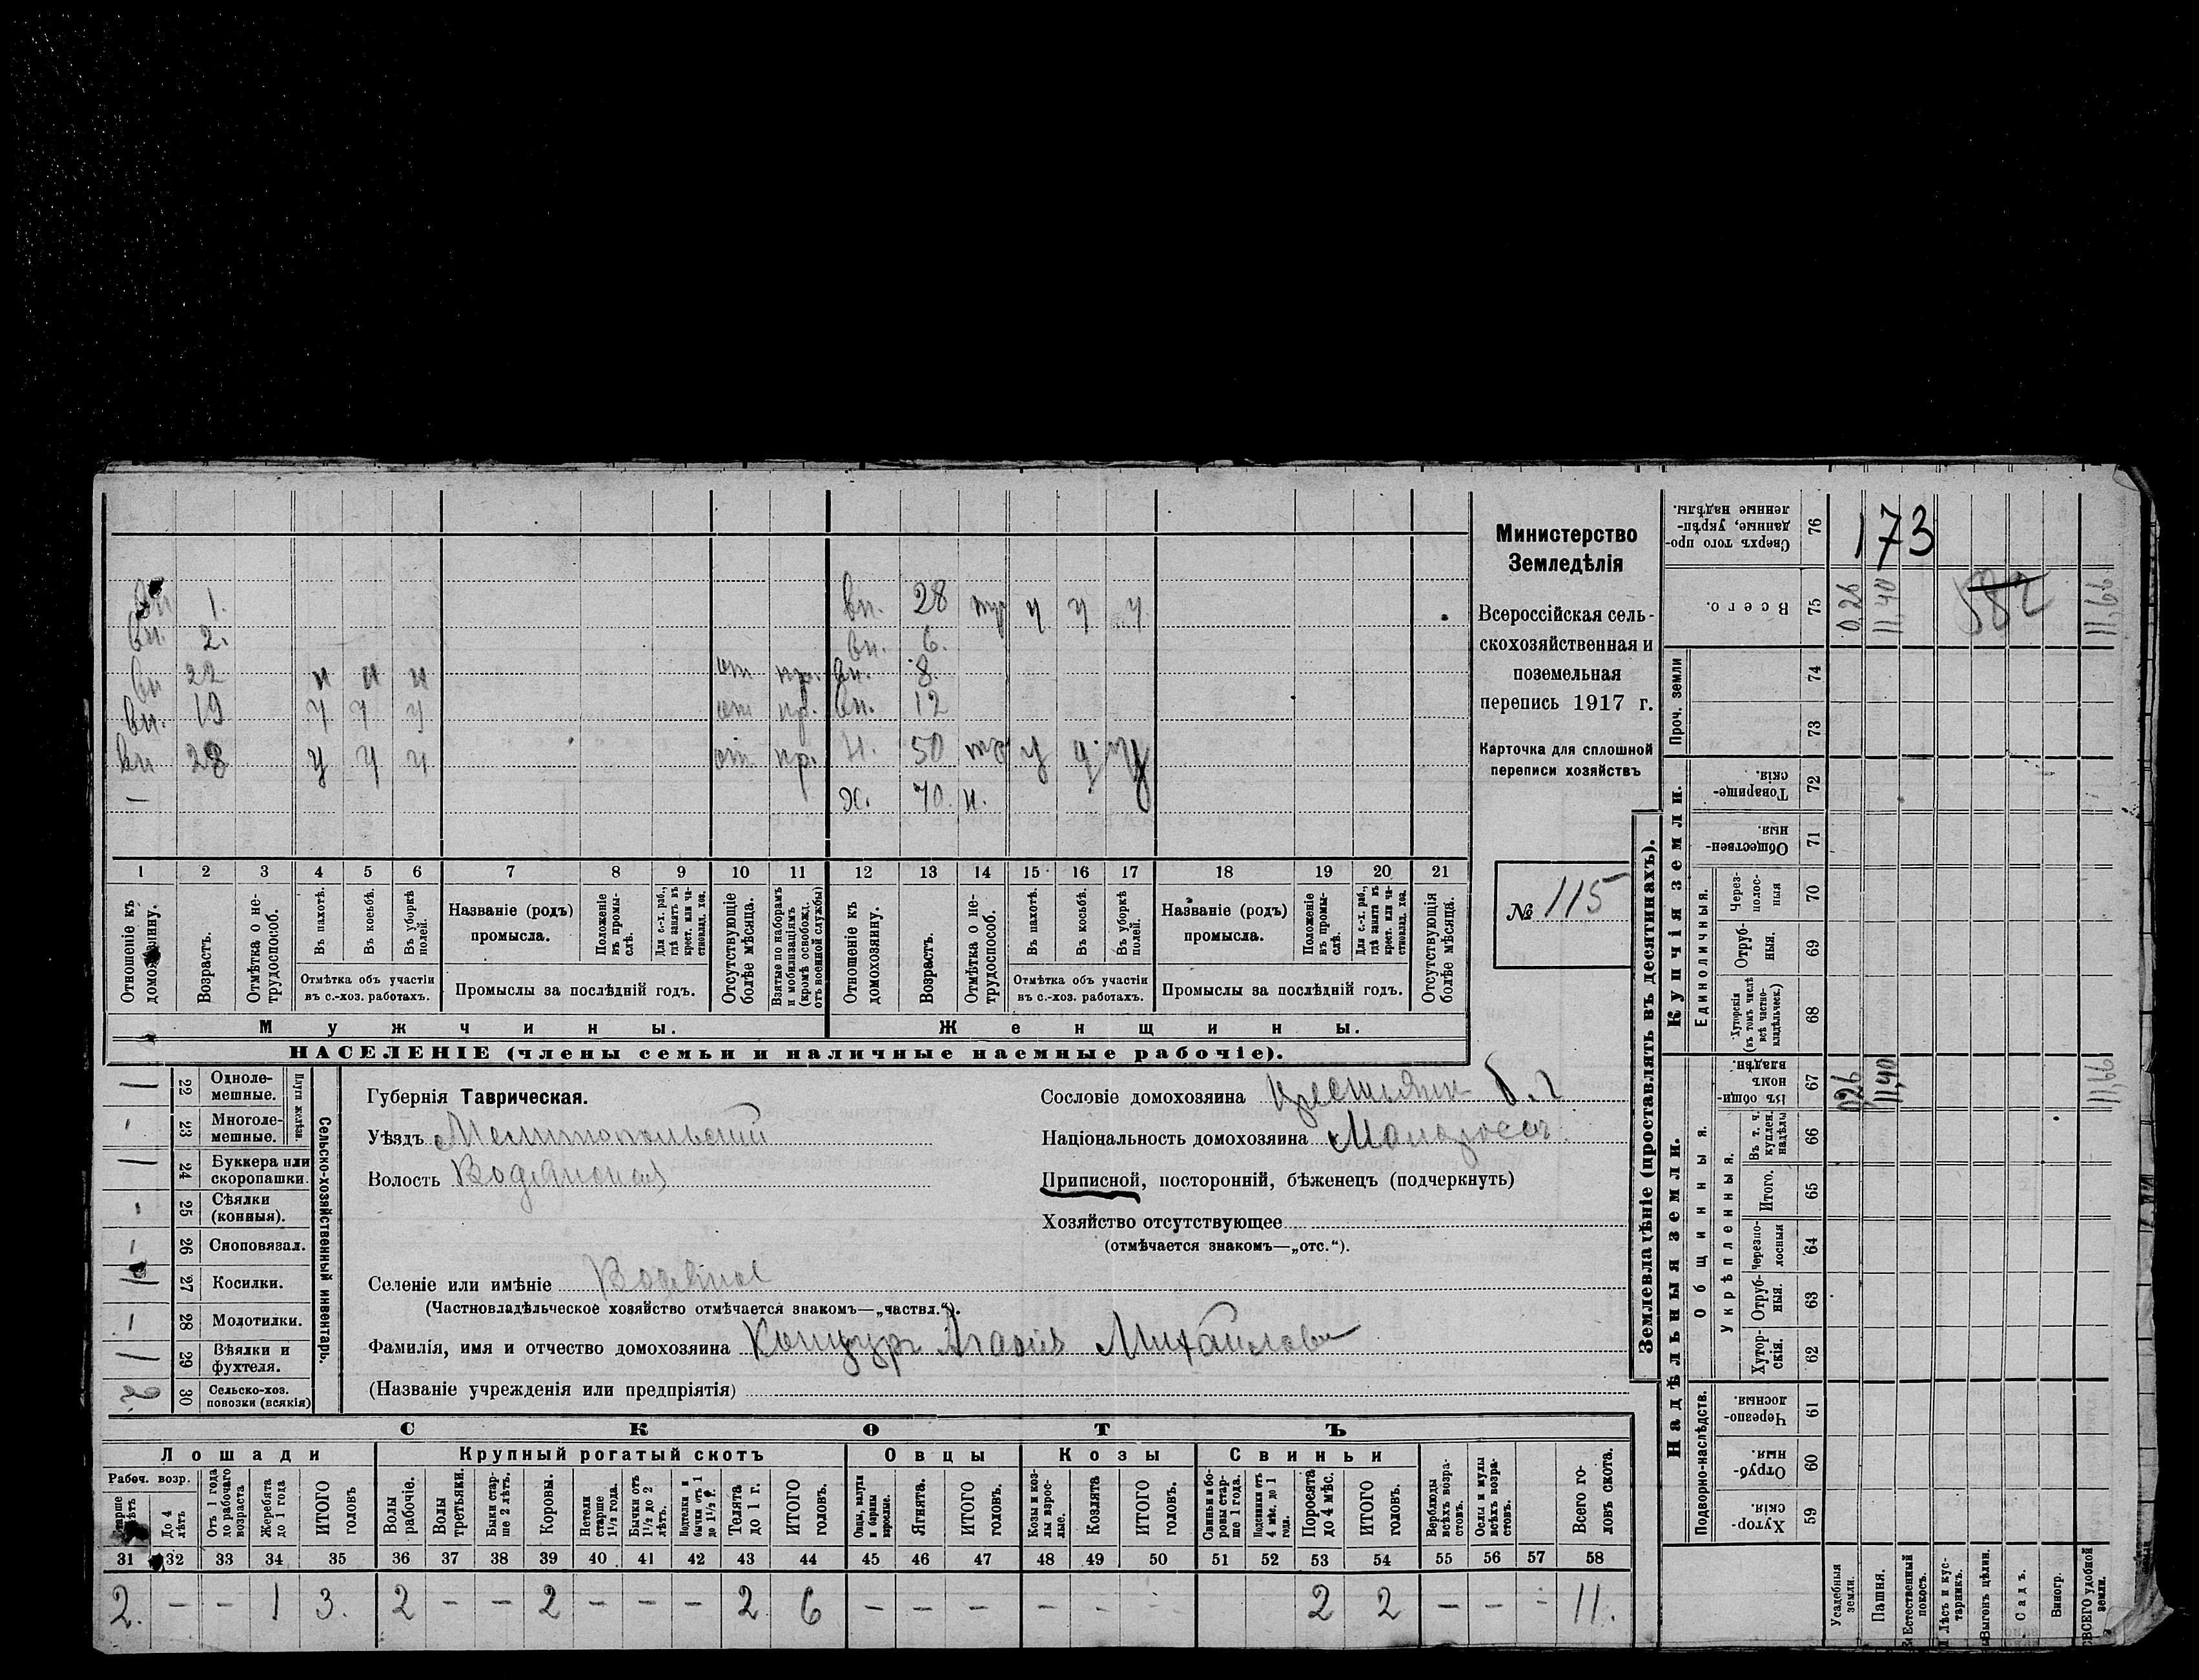 вн 1. вн. 28 тр у у у
вн. 2. вн. 6.
вн 22 и и и от пр. вн. 8.
вн. 19 у у у от пр. вн. 12
вн 28 у у у от пр. 50 у у
— ж. 70. н.
1 2 3 4 5 6 7 8 9 10 11 12 13 14 15 16 17 18 19 20 21
Отношеніе къ домохозяину. Возрастъ. Отмѣтка о не-трудоспособ. Въ пахотѣ. Въ косьбѣ. Въ уборкѣ полей. Названіе (родъ) промысла. Положеніе въ промы-слѣ. Для с.-х. раб., гдѣ занятъ въ крест. или ча-стновлад. хоз. Отсутствующіе болѣе мѣсяца. Взятые по наборамъ и мобилизаціямъ (кромѣ освобожд. отъ военной службы) Отношеніе къ домохозяину. Возрастъ. Отмѣтка о не-трудоспособ. Въ пахотѣ. Въ косьбѣ. Въ уборкѣ полей. Названіе (родъ) промысла. Положеніе въ промы-слѣ. Для с.-х. раб., гдѣ занята въ крест. или ча-стновлад. хоз. Отсутствующія болѣе мѣсяца.
Отмѣтка объ участіи въ с.-хоз. работахъ. Промыслы за послѣдній годъ. Отмѣтка объ участіи въ с.-хоз. работахъ. Промыслы за послѣдній годъ.
Мужчины. Женщины.
НАСЕЛЕНІЕ (члены семьи и наличные наемные рабочіе).
Министерство
Земледѣлія
Всероссійская сель-
скохозяйственная и
поземельная
перепись 1917 г.
Карточка для сплошной
переписи хозяйствъ
№ 115
Сельско-хозяйственный инвентарь.
Плуги желѣзн.
1 22 Одноле-мешные.
- 23 Многоле-мешные.
1 24 Буккера или скоропашки.
- 25 Сѣялки (конныя).
- 26 Сноповязал.
1 27 Косилки.
- 28 Молотилки.
1 29 Вѣялки и фухтеля.
2 30 Сельско-хоз. повозки (всякія)
Губернія Таврическая.
Уѣздъ Мелитопольский
Волость Водянская
Селеніе или имѣніе Водяное
(Частновладѣльческое хозяйство отмѣчается знакомъ—„частвл.“).
Фамилія, имя и отчество домохозяина Концуръ Агафія Михайлова
(Названіе учрежденія или предпріятія)
Сословіе домохозяина крестьянин
Національность домохозяина Малоросс
Приписной, посторонній, бѣженецъ (подчеркнуть)
Хозяйство отсутствующее
(отмѣчается знакомъ—„отс.“).
СКОТЪ
Лошади Крупный рогатый скотъ Овцы Козы Свиньи
Рабоч. возр.
старше лѣтъ До 4 лѣтъ Отъ 1 года до рабочаго возраста Жеребята до 1 года ИТОГО головъ Волы рабочіе. Волы третьяки. Быки стар-ше 2 лѣтъ. Коровы. Нетели старше 1½ года. Бычки отъ 1½ до 2 лѣтъ. Подтелки и бычки отъ 1 до 1½ г. Телята до 1 г. ИТОГО головъ. Овцы, валухи и бараны взрослые. Ягнята. ИТОГО головъ. Козы и коз-лы взрос-лые. Козлята ИТОГО головъ. Свиньи и бо-ровы стар-ше 1 года. Подсвинки отъ 4 мѣс. до 1 года. Поросята до 4 мѣс. ИТОГО головъ. Верблюды всѣхъ возра-стовъ. Ослы и мулы всѣхъ возра-стовъ. Всего го-ловъ скота.
31 32 33 34 35 36 37 38 39 40 41 42 43 44 45 46 47 48 49 50 51 52 53 54 55 56 57 58
2. — — 1 3. 2 — — 2 — — — 2 6 — — — — - - 2 2 — — - 11.
Землевладѣніе (проставлять въ десятинахъ).
Надѣльныя земли. Купчія земли. Проч. земли
Подворно-наслѣдств. Общинныя. Укрѣпленныя. Единоличныя.
Сверхъ того про-данные, укрѣп-ленные надѣлы. 76 173
Всего. 75 0,26 11,40 582 11,66
74
73
Товарище-скія. 72
Обществен-ныя. 71
Через-полос-ныя 70
Отруб-ныя. 69
Хуторскія (въ томъ числѣ всѣ частно-владѣльческ.) 68
Въ общи-номъ владѣн. 67 0,26 11,40 11,66
Въ т. ч. куплен. надѣлы 66
Итого. 65
Черезпо-лосныя 64
Отруб-ныя. 63
Хутор-скія. 62
Черезпо-лосныя. 61
Отруб-ныя. 60
Хутор-скія. 59
Усадебныя земли. Пашня. Естественный покосъ. Лѣсъ и кус-тарникъ. Выгонъ цѣлин. Садъ. Виногр. ВСЕГО удобной земли.